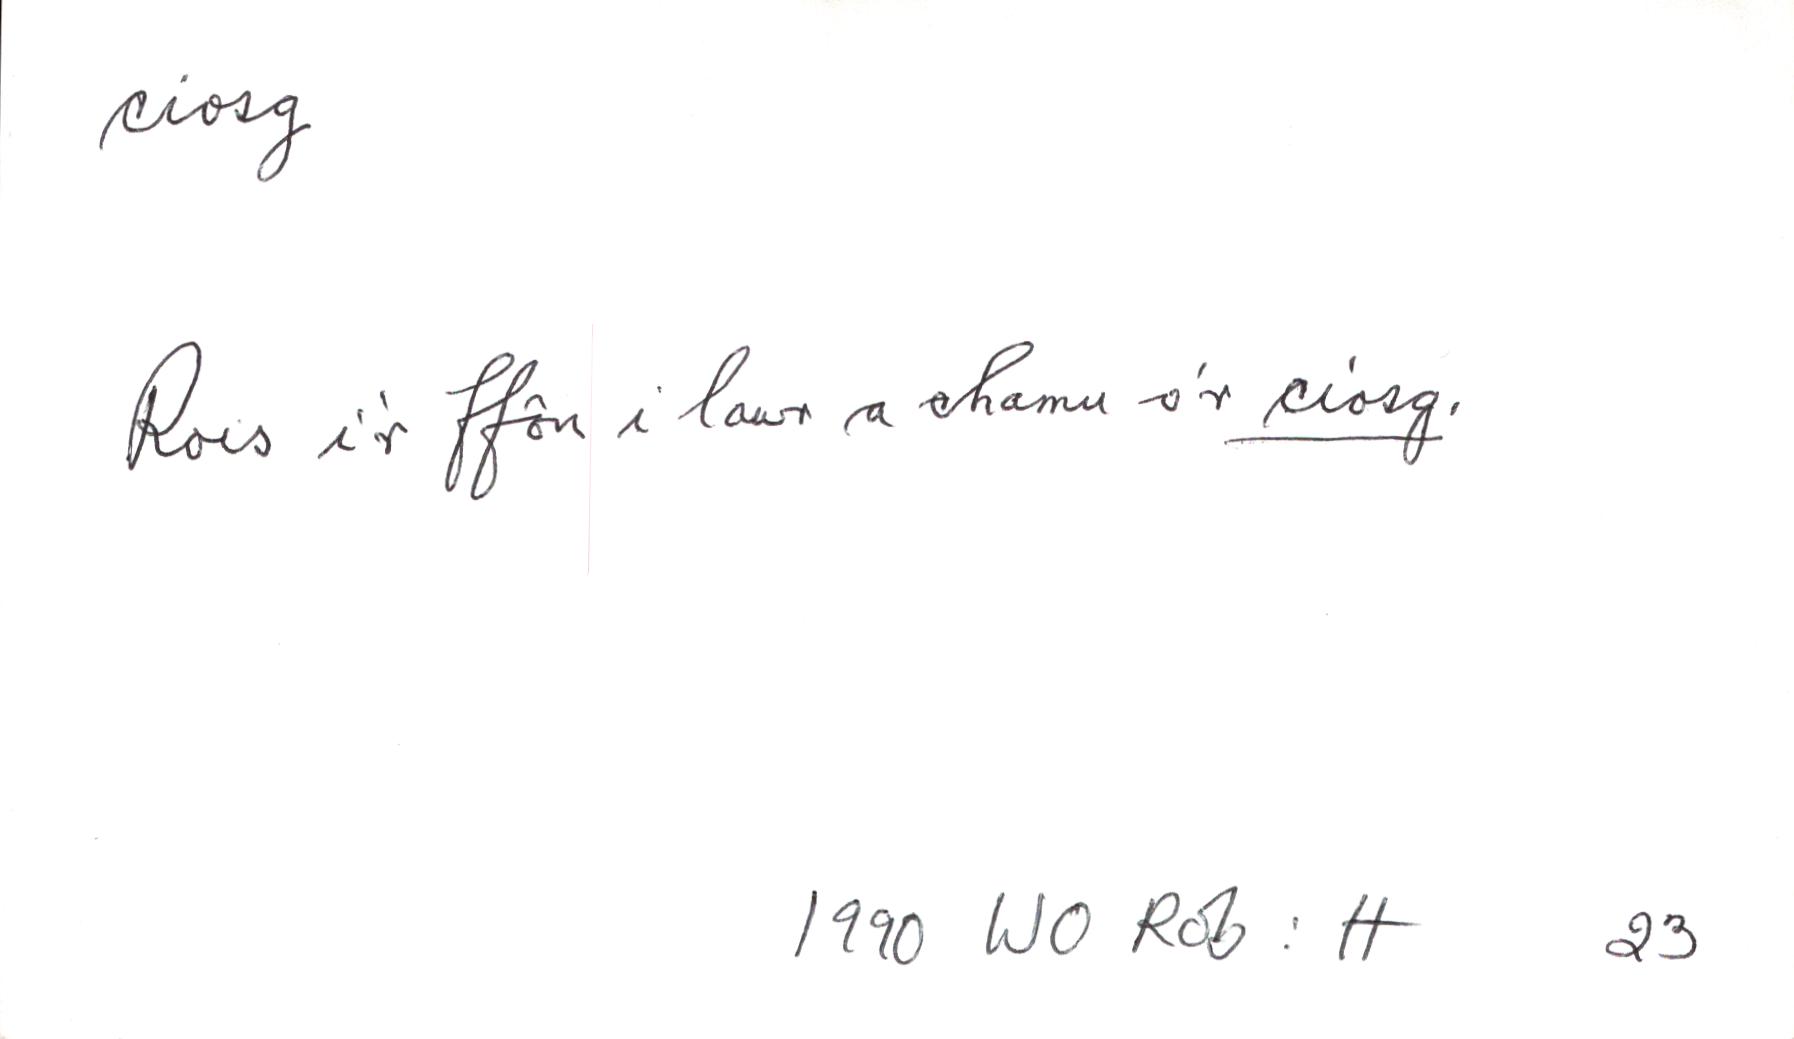 ciosg
Rois i'r ffôn i lawr a chamu o'r ciosg.
1990 WO Rob : H 23